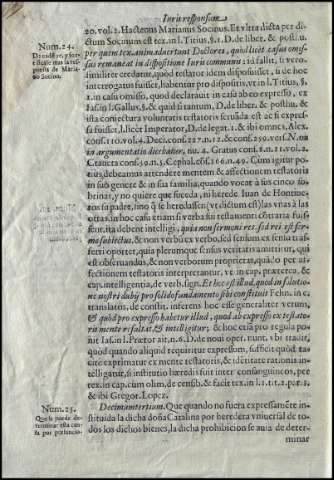 Iuris responsum
20. vol. 1. Hactenus Marianus Socinus. Et vltra dicta per di
ctum Socinum est tex. in l. Titius, §. 1. D. de liber. & posthu.
per quem tex. animaduertunt Doctores, quod licet casus omis-
sus remaneat in dispositione Iuris communis: id fallit, si vero-
similiter credatur, quod testator idem disposuisset, si de hoc
interrogatus fuisset, habentur pro dispositis, in l. Titius, §.
1. in casu omisso, quod declarauit in casu ab eo expresso, &
Ias. in l. Gallus, §. & quid si tantum, D. de liber. & posthu. &
ista coniectura voluntatis testatoris seruada est ac si expres-
sa fuisset, l. licet Imperator, D. de legat. 1. & ibi omnes, Alex.
Craueta cons. 59. n. 3. Cephal.
debeamus attendere mentem & affectionem testatoris
in sub genere & in sua familia, quando vocat à sus cinco sobri-
nas, y no quiere que suceda, ni herede Iuan de Hontine-
ros su padre, imo q̃ se hereda ssen (vt dictum est) las vnas à las
otras, in hoc casu etiam si verba sui testamenti cōtraria fuis-
sent, ita debent intelligi, quia non sermoni res, sed rei est ser-
mo subiectus, & non verbū ex verbo, sed sensum ex sensu trās
ferri oportet, quia plerumque sensus veritatis amittitur, qui
est obseruandus, & non verborum proprietas, quādo per af-
fectionem testatoris interpretantur, vt in cap. præterea, &
cap. intelligentia, de verb. sign. Et hoc est illud, quod in solutio-
ne nostri dubij pro solido fundamento sibi constituit Felin. in c.
translato, de constit. inferens hoc esse generaliter verum,
& quòd pro expresso habetur illud, quod ab expresso ex testato-
ris mente resultat & intelligitur; & hoc etiā pro regula po-
nit Ias. in l. Prætor ait, n. 6. D. de noui oper. nunt. vbi tradit,
quòd quando aliquid requiritur expressum, sufficit quòd ta-
citè exprimatur ex mente testatoris, & idētitate rationis in-
telligatur, si institutio hæredis sit inter consanguineos, per
tex. in cap. cum olim, de censib. & facit tex. in l. 1. tit. 1. par. 1.
& ibi Gregor. Lopez.
Decimumtertium. Que quando no fuera expressamēte in-
stituida la dicha doña Catalina por heredera vniuersal de to-
dos los dichos bienes, la dicha prohibicion se auia de deter-
minar
Num. 24.
Num. 25.